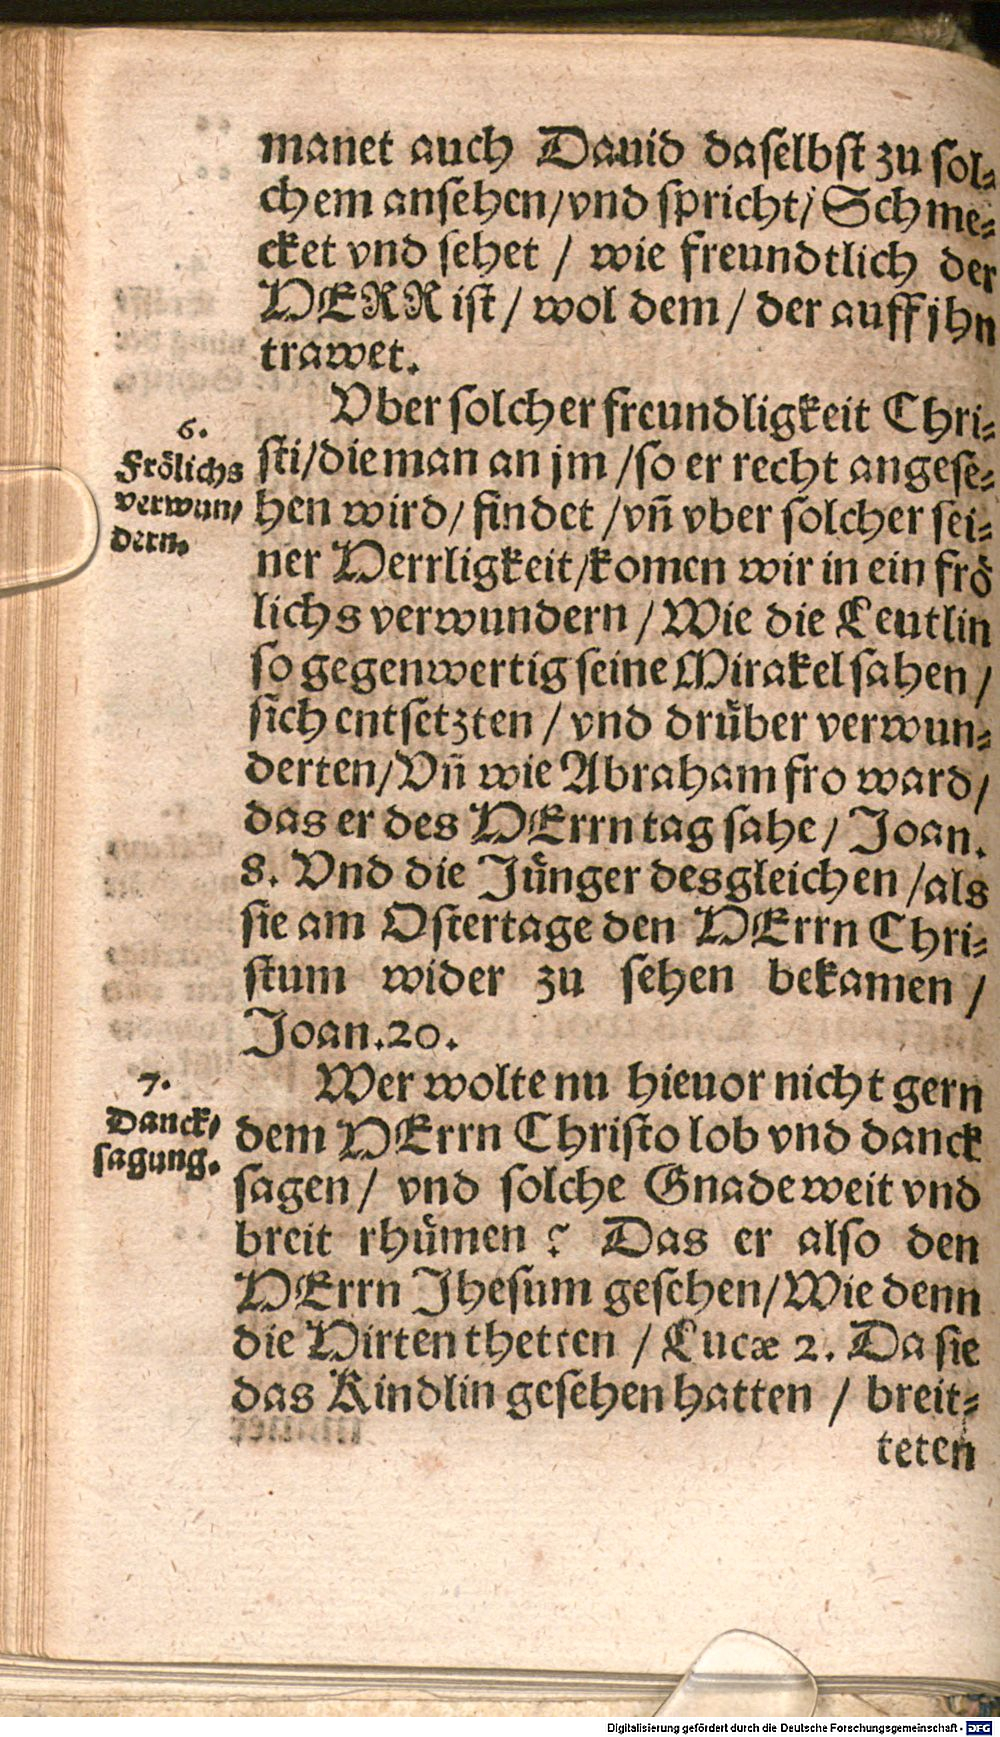 manet auch Dauid daselbst zu sol-
chem ansehen/vnd spricht/ Schme-
cket vnd sehet / wie freundtlich der
HERR ist / wol dem / der auff jhn
trawet.
Vber solcher freundligkeit Chri-
6.
Frölichs
verwun/
dern.
sti/die man an jm /so er recht angese-
hen wird/ findet /vñ vber solcher sei-
ner Herrligkeit/komen wir in ein frö
lichs verwundern / Wie die Leutlin
so gegenwertig seine Mirakel sahen /
sich entsetzten / vnd drüber verwun-
derten/Vñ wie Abraham fro ward/
das er des HErrn tag sahe/ Joan.
8. Vnd die Jünger desgleichen /als
sie am Ostertage den HErrn Chri-
stum wider zu sehen bekamen /
Joan.20.
7.
Danck/
sagung.
Wer wolte nu hieuor nicht gern
dem HErrn Christo lob vnd danck
sagen / vnd solche Gnade weit vnd
breit rhümen ? Das er also den
HErrn Jhesum gesehen/Wie denn
die Hirten thetten / Lucæ 2. Da sie
das Kindlin gesehen hatten / breit-
teten
Digitalisierung gefördert durch die Deutsche Forschungsgemeinschaft - DFG